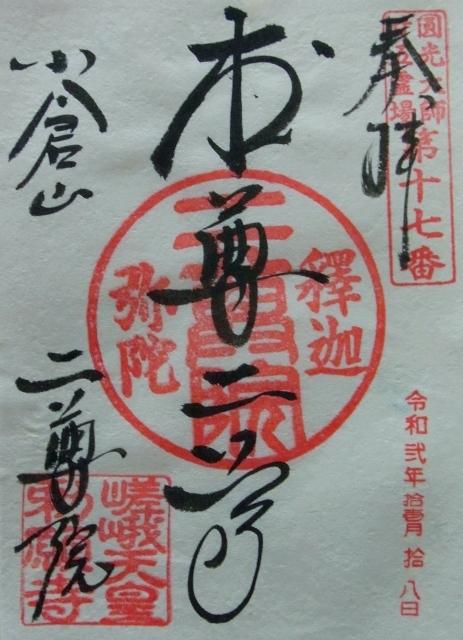 圓光大師
廿五靈場
第十七番
奉拝
令和弐年拾壹月拾八日
本尊二尊
釋迦
二尊院
弥陀
小倉山
二尊院
嵯峨天皇
勅願寺